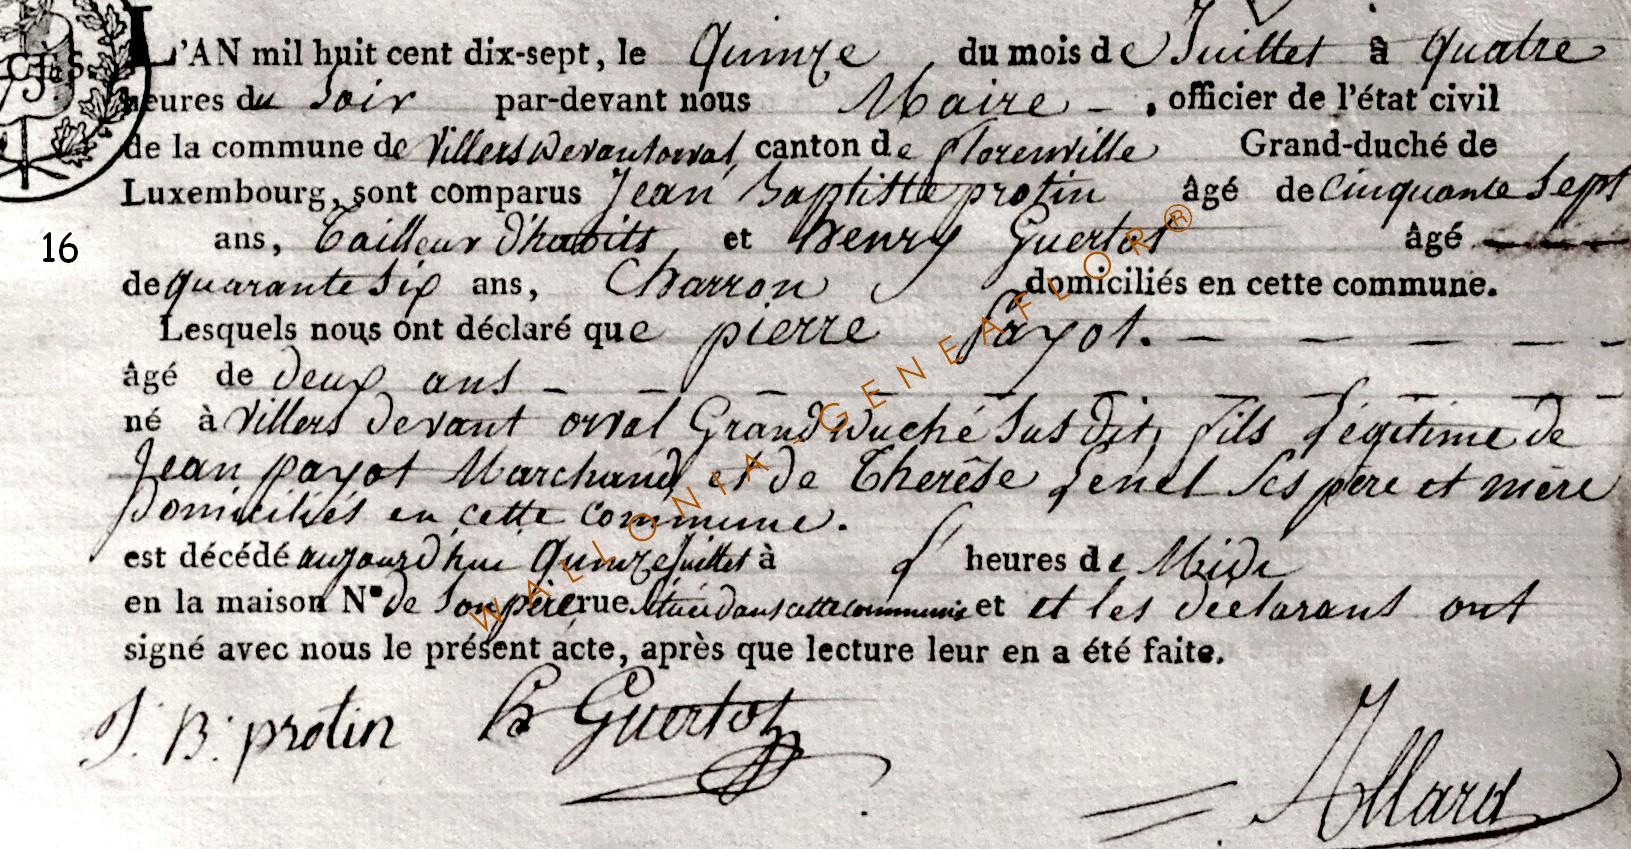 L'AN mil huit cent dix-sept, le Quinze du mois de Juillet à quatre
heures du Soir par-devant nous Maire - , officier de l'état civil
de la commune de Villers devant orval, canton de florenville Grand-duché de
Luxembourg, sont comparus Jean Baptiste protin âgé de Cinquante Sept
16
ans, Tailleur d'habits et henry Guertot âgé
de quarante Six ans, Charron domiciliés en cette commune.
Lesquels nous ont déclaré que pierre payot. - - - - -
âgé de deux ans - - - - - - - - -
né à Villers devant orval Grand Duché Sus dit, fils légitime de
Jean payot Marchand et de Therêse Lenel Ses père et mère
Domiciliés en cette commune.
est décédé aujourd'hui Quinze Juillet à heures de Midi
en la maison N° de Son père, rue située dans cette commune et et les déclarans ont
signé avec nous le présent acte, après que lecture leur en a été faite.
J. B. protin h Guertot
Allard
WALLONIA-GENEAFLOR®